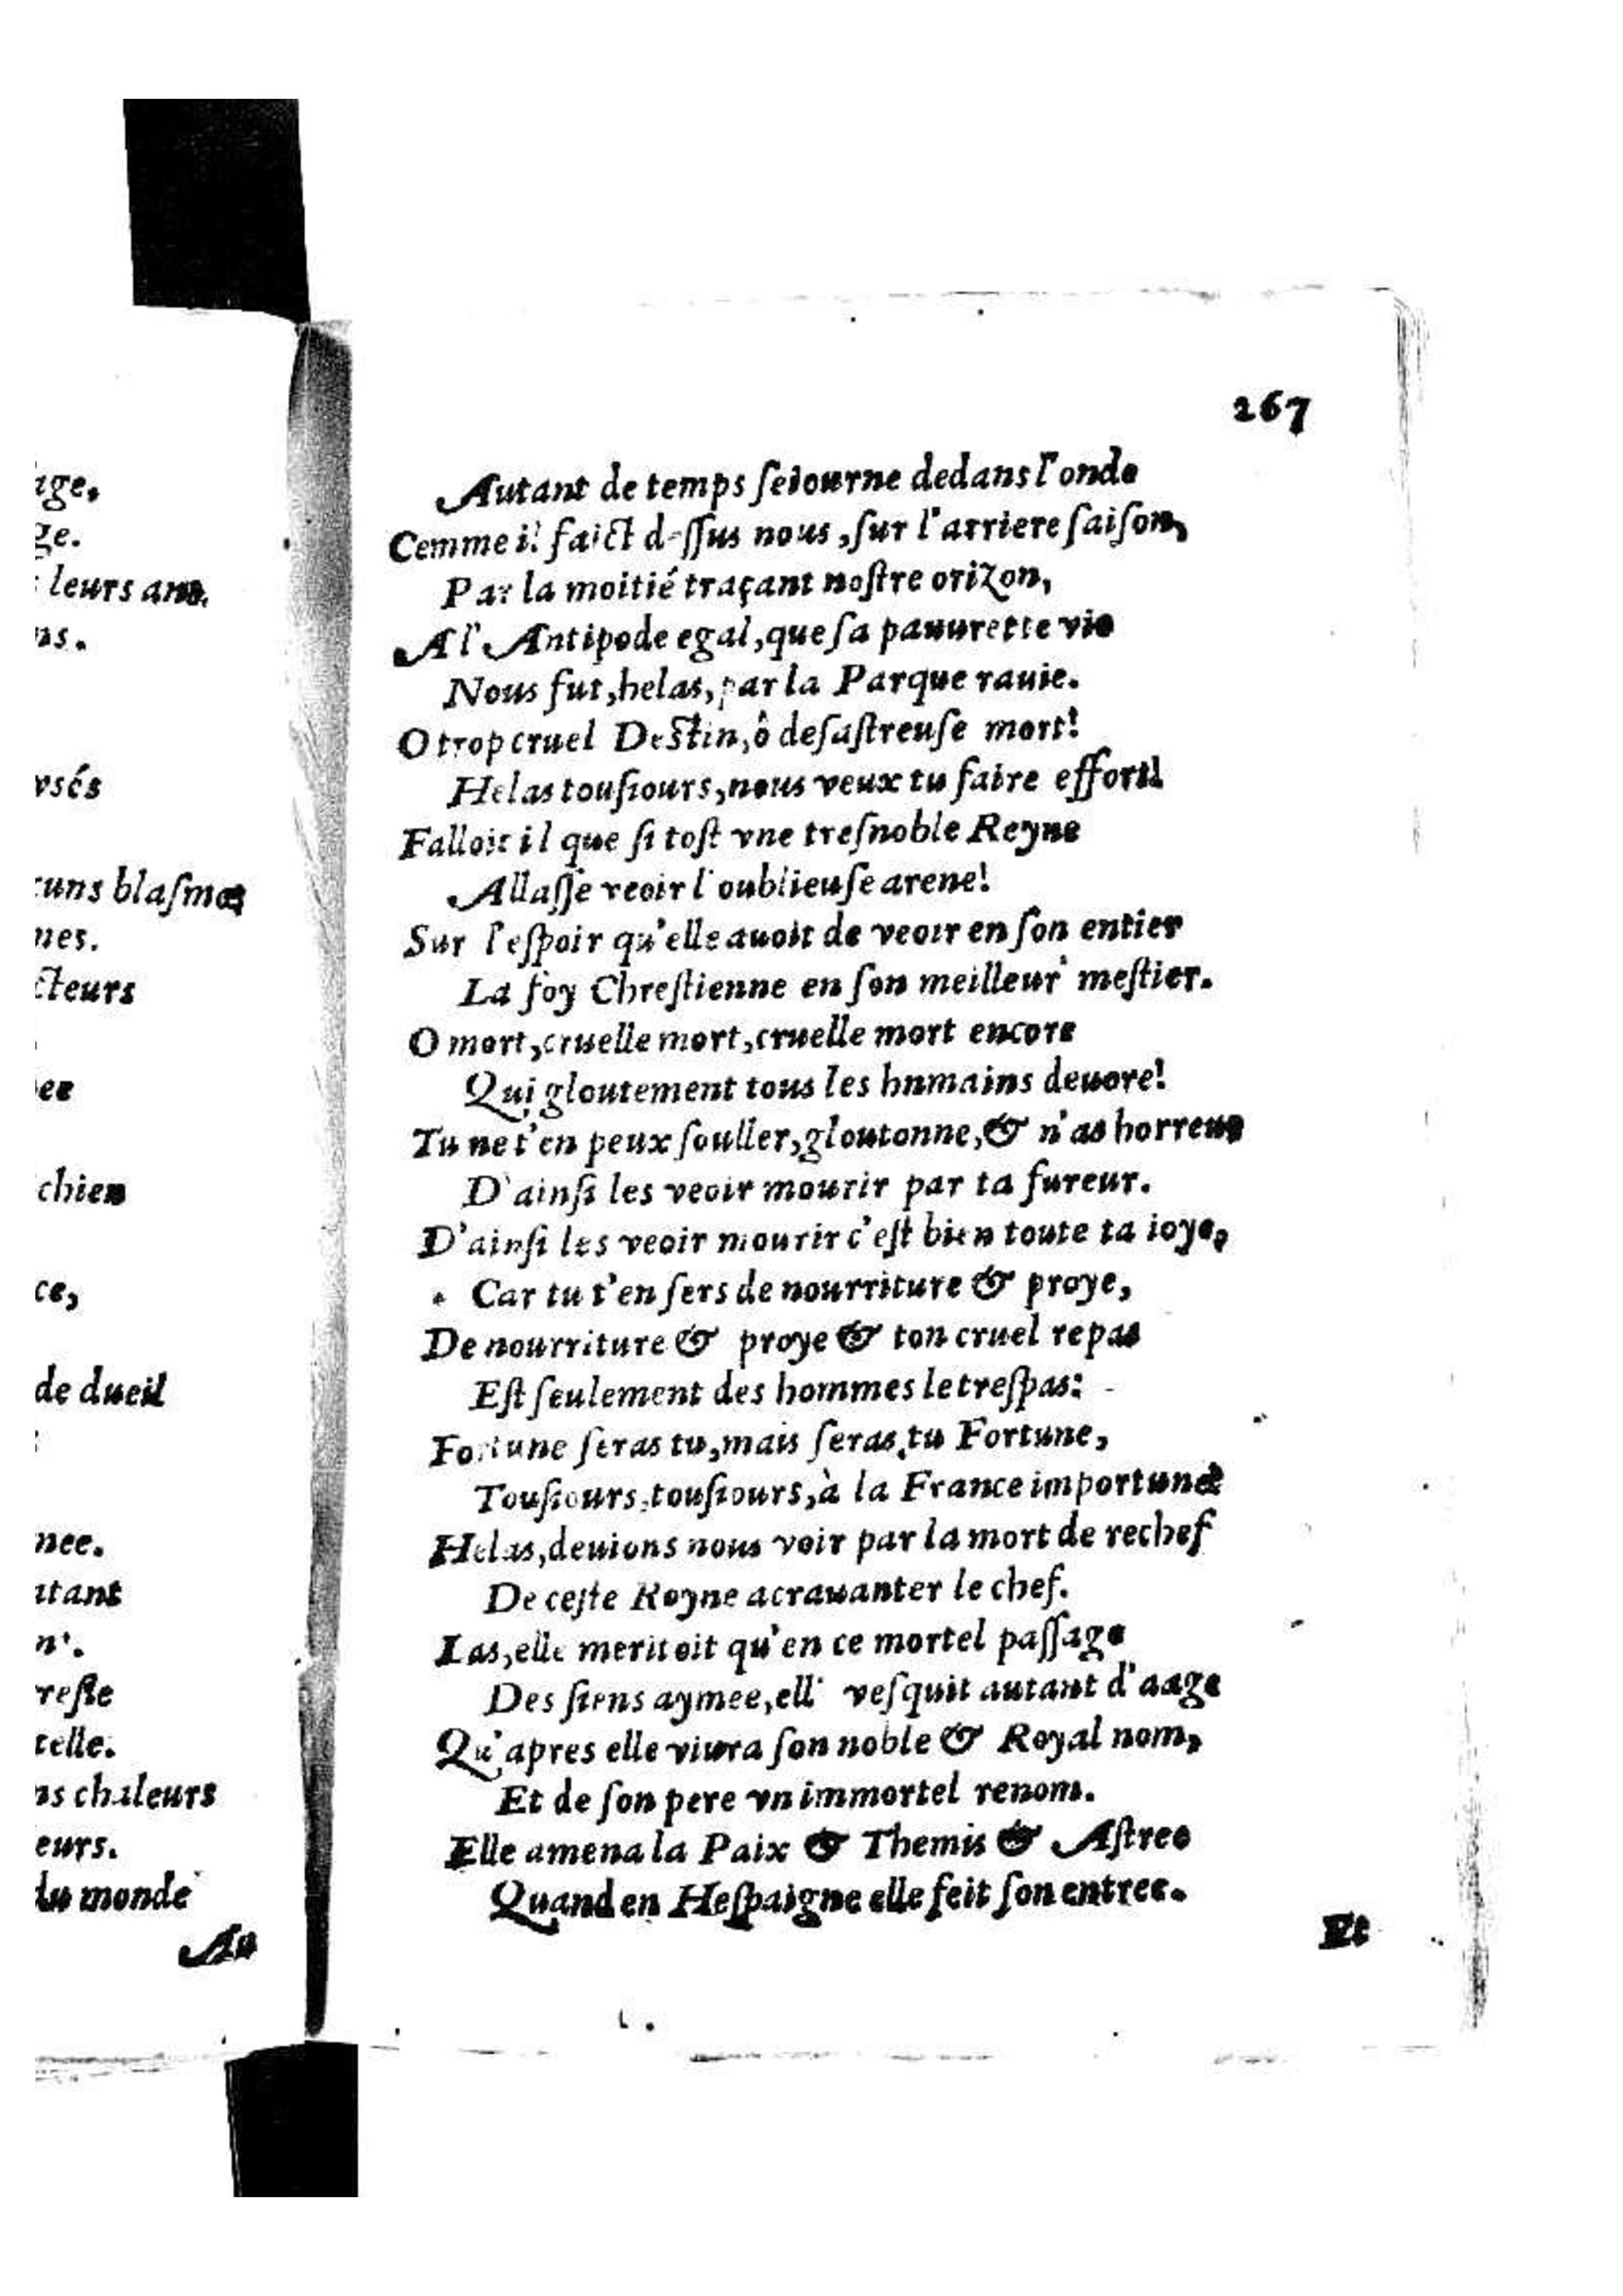 267
Autant de temps ſeiourne dedans l'onde
Cemme il faict deſſus nous, ſur l'arriere ſaiſon,
Par la moitié traçant noſtre orizon,
A l'Antipode egal, que ſa pauurette vie
Nous fut, helas, par la Parque rauie.
O trop cruel Deſtin, ô deſaſtreuſe mort!
Helas touſiours, nous veux tu faire effort!
Falloit il que ſi toſt vne treſnoble Reyne
Allaſſe veoir l'oublieuſe arene!
Sur l'eſpoir qu'elle auoit de veoir en ſon entier
La foy Chreſtienne en ſon meilleur meſtier.
O mort, cruelle mort, cruelle mort encore
Qui gloutement tous les hnmains deuore!
Tu ne t'en peux ſouller, gloutonne, & n'as horreur
D'ainſi les veoir mourir par ta fureur.
D'ainſi les veoir mourir c'eſt bien toute ta ioye,
Car tu t'en ſers de nourriture & proye,
De nourriture & proye & ton cruel repas
Eſt ſeulement des hommes le treſpas:
Fortune ſeras tu, mais ſeras tu Fortune,
Touſiours, touſiours, à la France importune
Helas, deuions nous voir par la mort de rechef
De ceſte Royne acrauanter le chef.
Las, elle meritoit qu'en ce mortel paſſage
Des ſiens aymee, ell' veſquit autant d'aage
Qu'apres elle viura ſon noble & Royal nom,
Et de ſon pere vn immortel renom.
Elle amena la Paix & Themis & Aſtree
Quand en Heſpaigne elle feit ſon entree.
Et
age,
ge.
leurs ans.
ns.
vsés
cuns blaſmes
mes.
cteurs
ee
chien
ce,
de dueil
nee.
tant
n'.
reſte
telle.
ns chaleurs
eurs.
du monde
Au